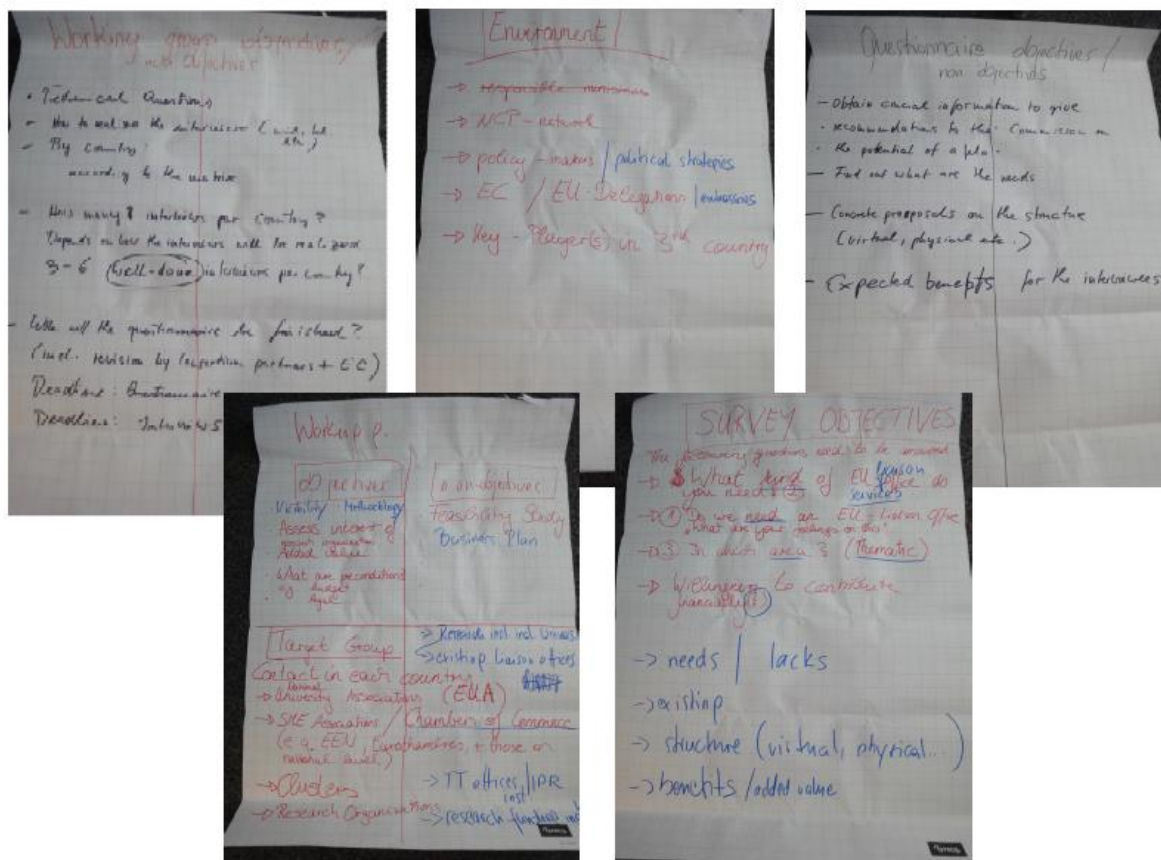 Working group objectives/
non objectives
• Technical Questions
- How to realize the interviews (
- By country:
according to the matrix
- How many? interviews per country?
Depends on how the interviews will be realized
3-6 (well-done) interviews per country?
- will the questionnaire be finished?
(incl. revision by partners + EC)
Deadline: Questionnaire
Deadline: Interviews
Environment
→ responsible ministries
→ NCP-network
→ policy-makers / political strategies
→ EC / EU-Delegations / embassies
→ Key-Player(s) in 3rd country
Questionnaire objectives /
non objectives
- Obtain crucial information to give
• recommendations to the Commission on
• the potential of a
- Find out what are the needs
- Concrete proposals on the structure
(virtual, physical etc.)
- Expected benefits for the interviewees
objectives
• Visibility • Methodology
Assess interest of
Added value
• What are preconditions
eg budget
non-objectives
Feasibility Study
Business Plan
Target Group
Contact in each country
→ University Associations (EUA)
→ SME Associations / Chambers of Commerce
(e.g. EEN, Eurochambres, + those on
national level)
→ Clusters
→ Research Organisations
→ Research inst. incl.
→ existing liaison offices
→ TT offices / IPR
inst
→ research
SURVEY OBJECTIVES
The following questions need to be answered
→ What kind of EU liaison office do
you need? services
→ ① Do we need an EU-Liaison Office
what are your feelings on this?
→ ③ In which area? (Thematic)
→ Willingness to contribute
financially?
→ needs / lacks
→ existing
→ structure (virtual, physical...)
→ benefits / added value